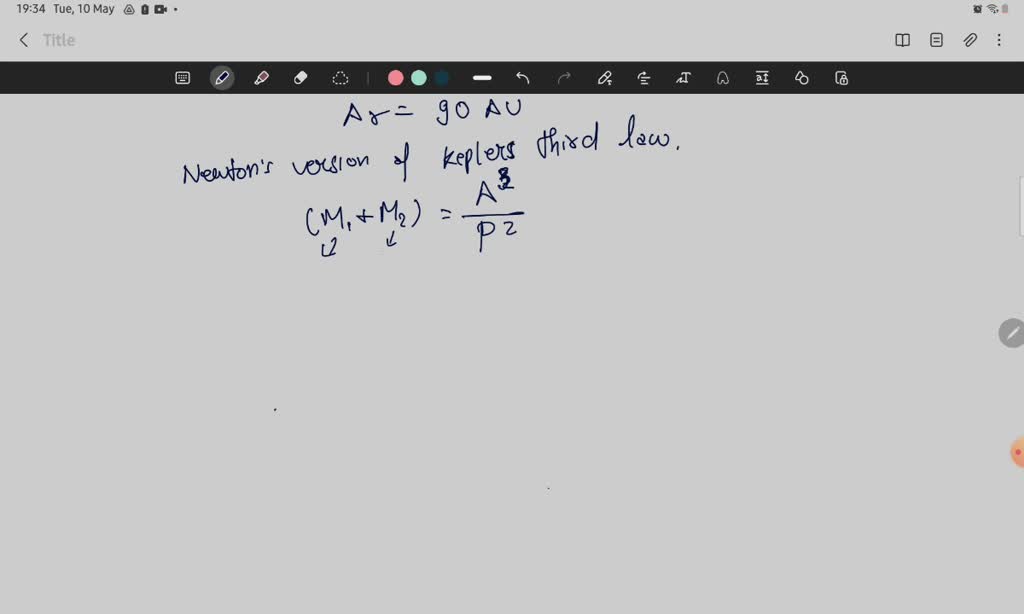 19:34 Tue, 10 May
Title
Ar = 90 AU
Newton's version of Keplers third law.
(M₁ + M₂) = A³ / P²